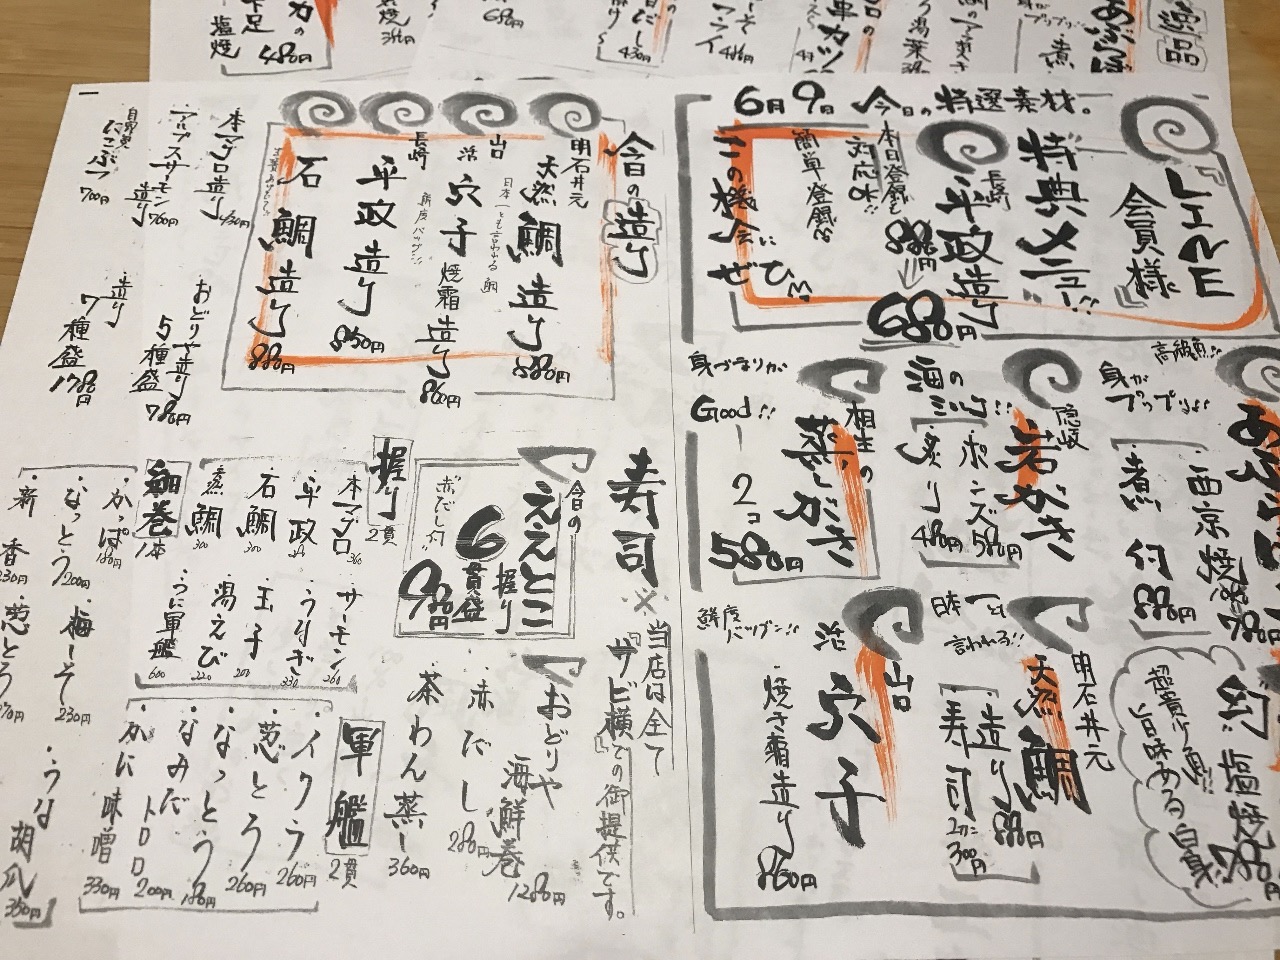 6月9日 今日の特選素材。
『LINE
会員様』
特典メニュー!!
長崎
平政造り
880円
680円
本日登録も
対応OK!!
簡単登録な
この機会に
ぜひ
高級魚!!
身が
プップリよ!!
西京焼 780円
煮付 880円
塩焼 780円
超貴少魚!!!
旨味ある白身
隠岐
岩がき
海のミルク!!
ポンズ 580円
炙り 480円
相生の
蒸しがき
身づまりが
Good!!
2コ
580円
明石井元
天然鯛
日本一とも
言われる!!
造り 880円
寿司 2カン 300円
山口
活
穴子
鮮度
バツグン!!
焼き霜造り 860円
今日の造り
明石井元
天然鯛造り 880円
日本一とも言われる鯛
山口
活穴子焼霜造り 860円
鮮度バツグン!!
長崎
平政造り 850円
石鯛造り 880円
本マグロ造り
アルプスサーモン造り 760円
にこぶつ 700円
おどりや造り
5種盛 780円
造り
7種盛 1780円
寿司
※当店は全て
『サビ横』での御提供です。
今日の
ええとこ
握り
6貫盛
980円
赤だし付
おどりや
海鮮巻 1280円
赤だし 280円
茶わん蒸し 360円
握り 2貫
本マグロ 360
サーモン 260
平政
うなぎ 330
石鯛 300
玉子 200
蒸鯛 300
湯えび 220
うに軍艦 600
軍艦 2貫
・イクラ 260円
・葱とろ 260円
・なっとう 180円
・なみだトロロ 200円
・かに味噌 330円
細巻 1本
・かっぱ 180円
・なっとう 200円
・梅しそ 230円
・新香 230円
・葱とろ 270円
・うな胡瓜 350円
塩焼
480円
680円
430円